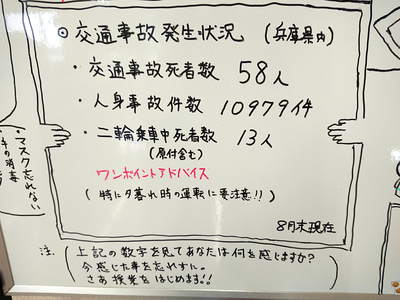 ◎交通事故発生状況 (兵庫県内)
・交通事故死者数 58人
・人身事故件数 10979件
・二輪乗車中死者数 13人
(原付含む)
ワンポイントアドバイス
(特に夕暮れ時の運転に要注意!!)
8月末現在
・マスク忘れない
・手の消毒
注.(上記の数字を見てあなたは何を感じますか?
今感じた事を忘れずに。
さあ授業をはじめます!!)